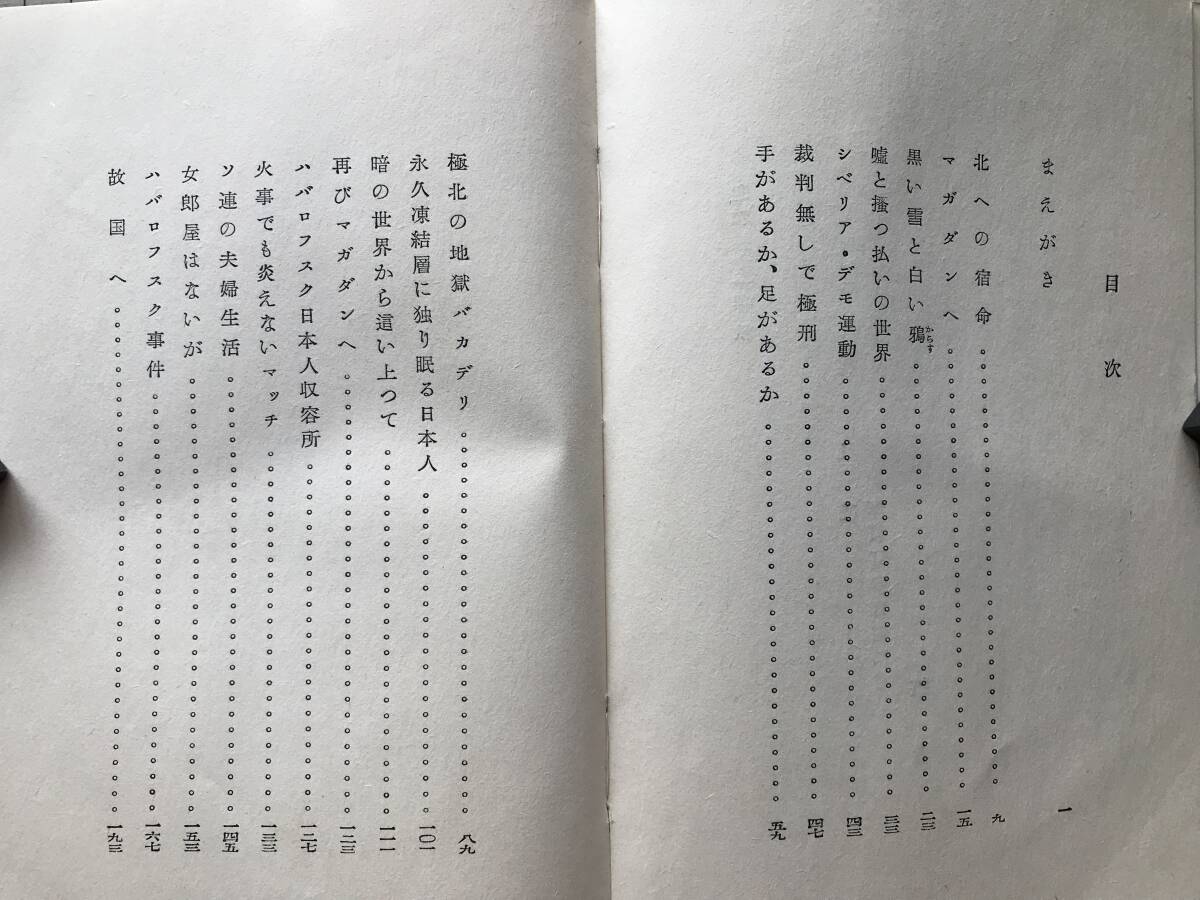 目次
まえがき 一
北への宿命 九
マガダンへ 一五
黒い雪と白い鴉 二三
からす
嘘と掻っ払いの世界 三三
シベリア・デモ運動 四三
裁判無しで極刑 四七
手があるか、足があるか 五九
極北の地獄バカデリ 八九
永久凍結層に独り眠る日本人 一〇一
暗の世界から這い上つて 一一一
再びマガダンへ 一二三
ハバロフスク日本人収容所 一二七
火事でも炎えないマッチ 一三三
ソ連の夫婦生活 一四五
女郎屋はないが 一五三
ハバロフスク事件 一六七
故国へ 一九三